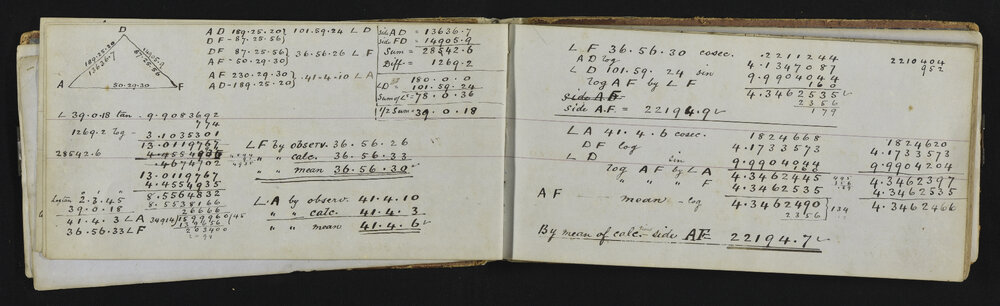 D
189.25.20
13636.7
14905.9
87.25.56
A 50.29.30 F
AD 189.25.20} 101.59.24 L D
DF - 87.25.56}
DF 87.25.56} 36.56.26 L F
AF - 50.29.30}
AF 230.29.30} 41.4.10 L A
AD - 189.25.20}
side AD = 13636.7
side FD = 14905.9
Sum = 28542.6
Diff = 1269.2
180.0.0
LD = 101.59.24
Sum of Ls = 78.0.36
1/2 Sum = 39.0.18
L 39.0.18 tan. 9.9083692
774
1269.2 log - 3.1035301
13.0119767
28542.6
.4674702
13.0119767
4.4554935
Log tan 2.3.45 8.5564832
39.0.18 8.5538166
26666
41.4.3 L A
36.56.33 L F
203400
L F by observ. 36.56.26
" " calc. 36.56.33
" " mean 36.56.30
L A by observ. 41.4.10
" " calc. 41.4.3
" " mean 41.4.6
L F 36.56.30 cosec. .2211244
AD log 4.1347087
L D 101.59.24 sin 9.9904044
log AF by L F 160
side AF 4.3462535
2356
side A.F = 22194.9 179
2210404
952
L A 41.4.6 cosec. 1824668
DF log 4.1733573
L D sin 9.9904044
160
log AF by L A 4.3462445
" " " F 4.3462535
AF mean - log 4.3462490
2356
134
1824620
4.1733573
9.9904204
4.3462397
4.3462535
4.3462466
By mean of calctns side AF = 22194.7